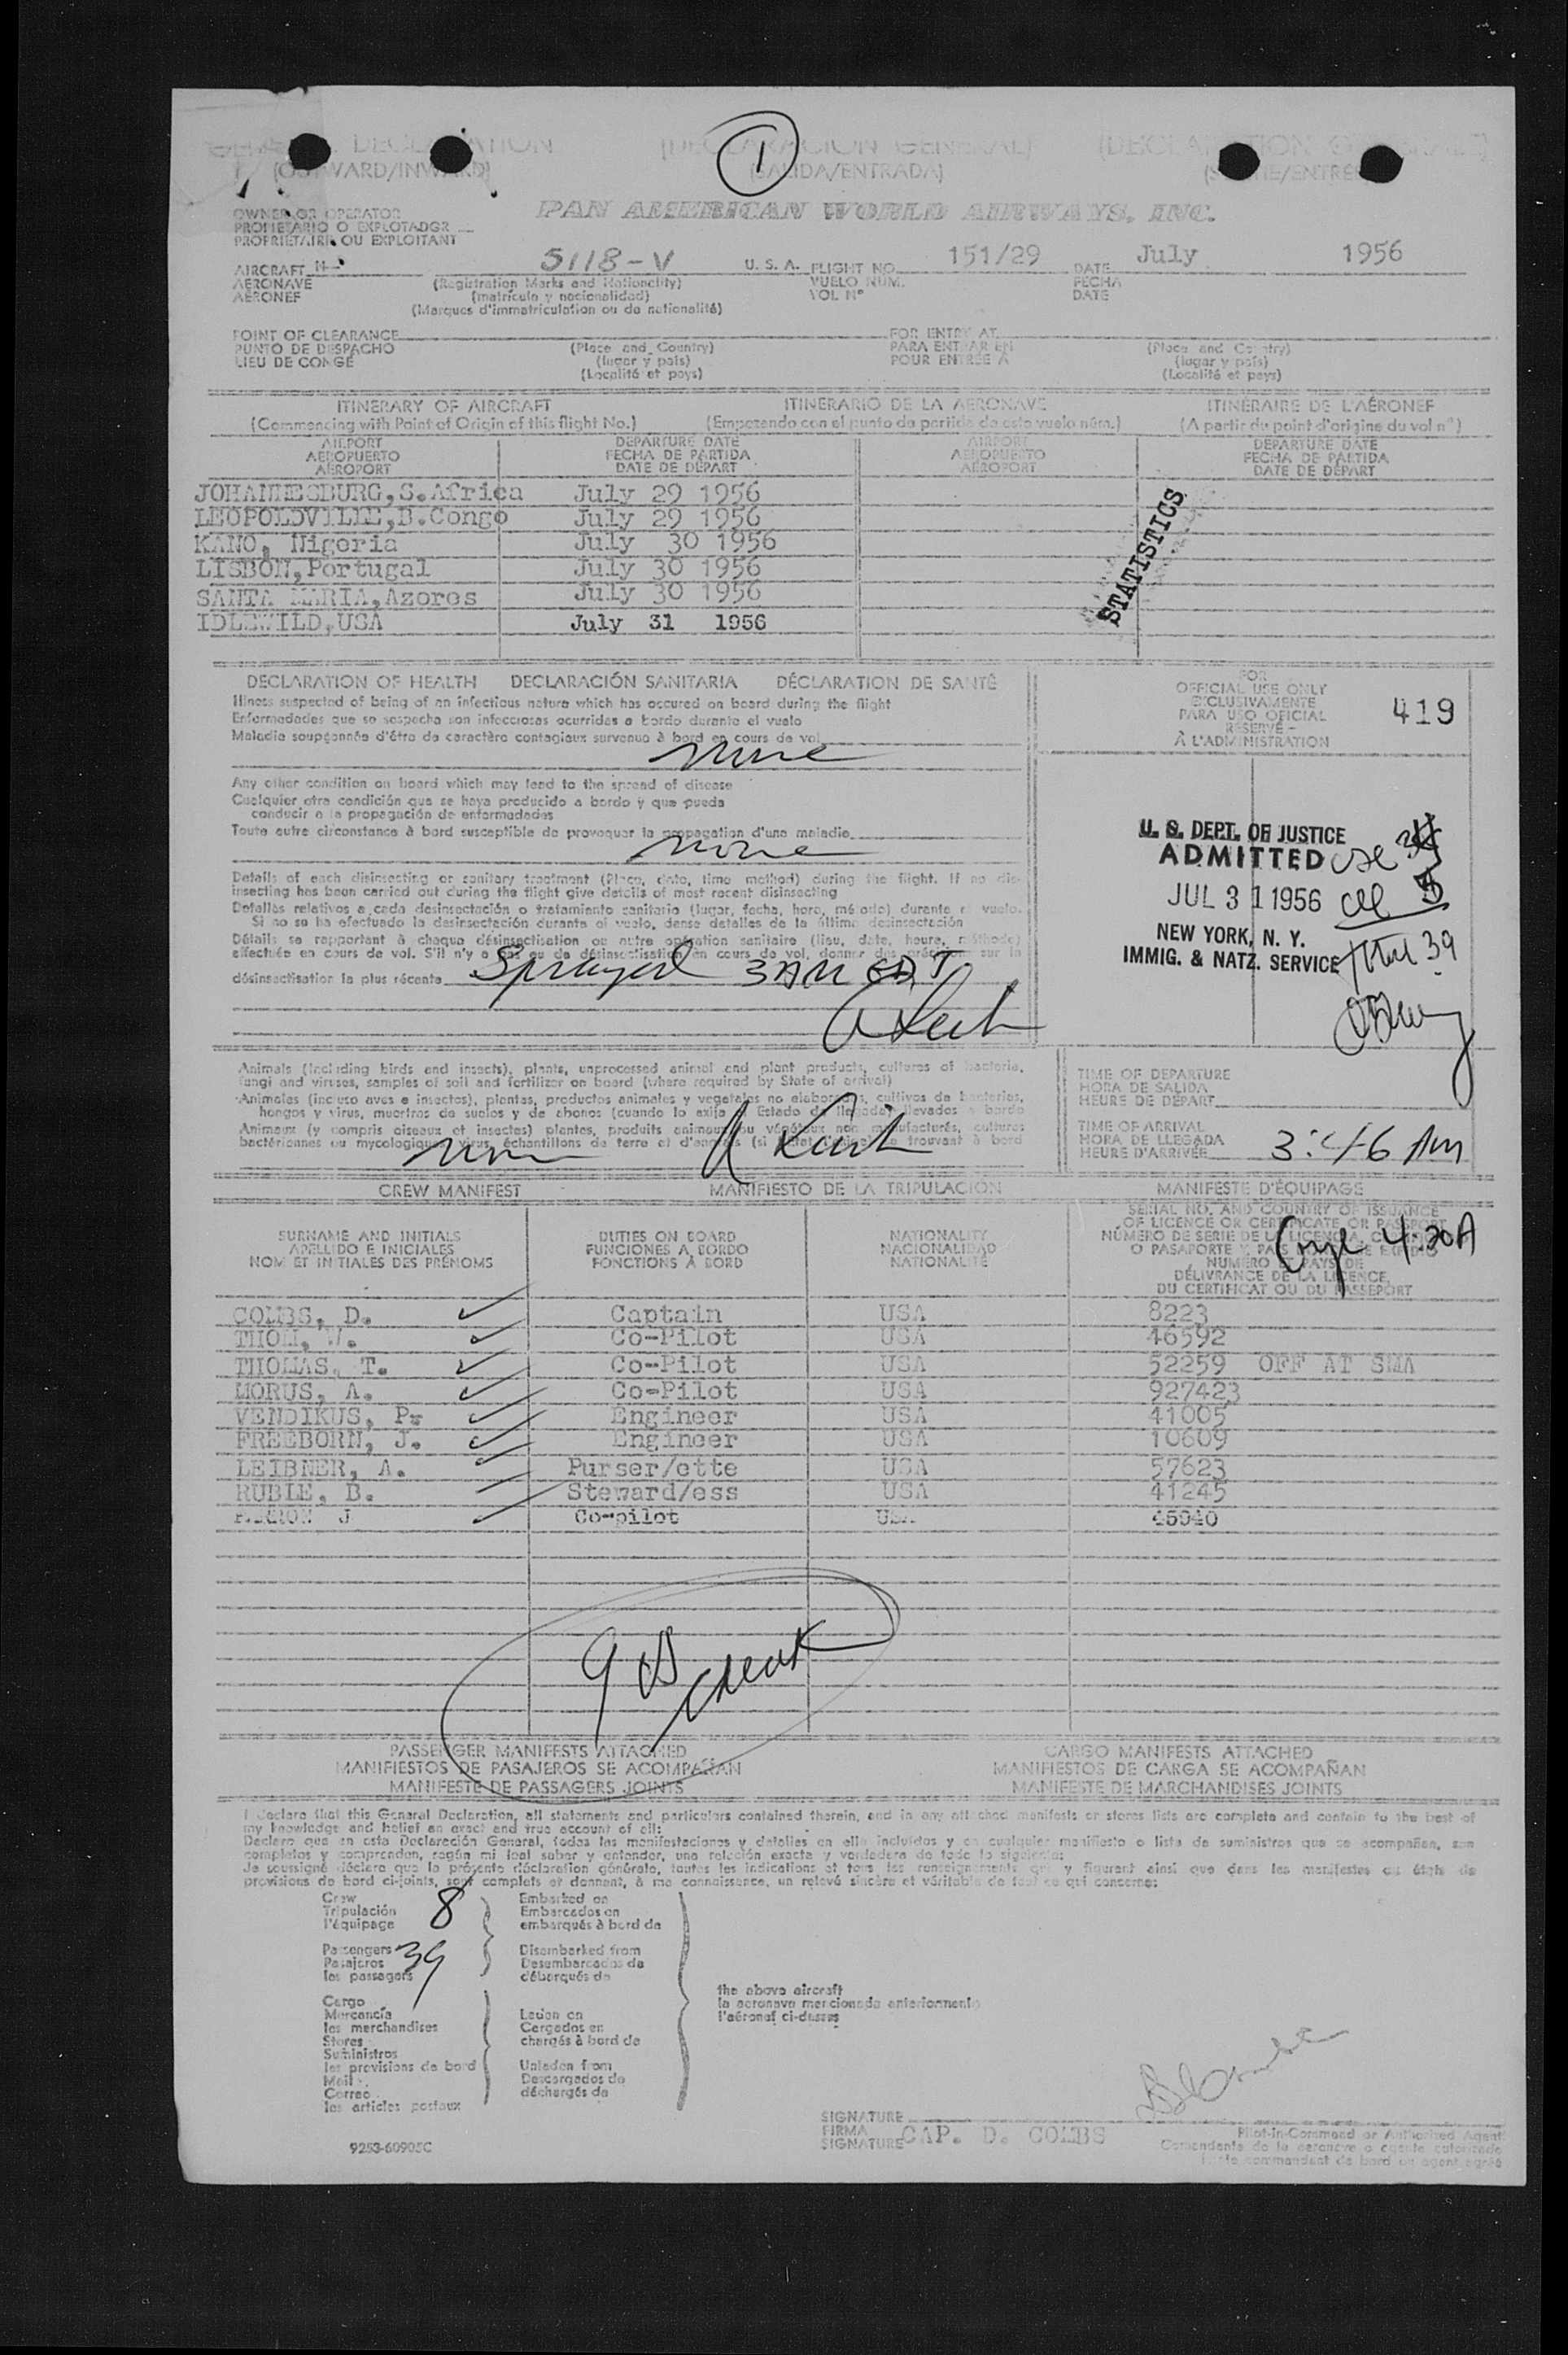 1
GENERAL DECLARATION (DECLARACION GENERAL)
(OUTWARD/INWARD) (SALIDA/ENTRADA)
OWNER OR OPERATOR PAN AMERICAN WORLD AIRWAYS, INC.
PROPIETARIO O EXPLOTADOR
PROPRIÉTAIRE OU EXPLOITANT
AIRCRAFT N- 5118-V U. S. A. FLIGHT NO. 151/29 DATE July 1956
AERONAVE (Registration Marks and Nationality) VUELO NUM. FECHA
AÉRONEF (matrícula y nacionalidad) VOL Nº DATE
(Marques d'immatriculation ou de nationalité)
POINT OF CLEARANCE FOR ENTRY AT
PUNTO DE DESPACHO (Place and Country) PARA ENTRAR EN (Place and Country)
LIEU DE CONGÉ (lugar y país) POUR ENTRÉE A (lugar y país)
(Localité et pays) (Localité et pays)
ITINERARY OF AIRCRAFT ITINERARIO DE LA AERONAVE ITINÉRAIRE DE L'AÉRONEF
(Commencing with Point of Origin of this flight No.) (Empezando con el punto de partida de este vuelo núm.) (A partir du point d'origine du vol nº)
AIRPORT DEPARTURE DATE AIRPORT DEPARTURE DATE
AEROPUERTO FECHA DE PARTIDA AEROPUERTO FECHA DE PARTIDA
AÉROPORT DATE DE DÉPART AÉROPORT DATE DE DÉPART
JOHANNESBURG,S.Africa July 29 1956
LEOPOLDVILLE,B.Congo July 29 1956
KANO, Nigeria July 30 1956
LISBON,Portugal July 30 1956
SANTA MARIA,Azores July 30 1956
IDLEWILD,USA July 31 1956
STATISTICS
DECLARATION OF HEALTH DECLARACIÓN SANITARIA DÉCLARATION DE SANTÉ
Illness suspected of being of an infectious nature which has occured on board during the flight
Enfermedades que se sospecha son infecciosas ocurridas a bordo durante el vuelo
Maladie soupçonnée d'être de caractère contagieux survenue à bord en cours de vol
none
Any other condition on board which may lead to the spread of disease
Cualquier otra condición que se haya producido a bordo y que pueda
conducir a la propagación de enfermedades
Toute autre circonstance à bord susceptible de provoquer la propagation d'une maladie
none
Details of each disinsecting or sanitary treatment (Place, date, time method) during the flight. If no dis-
insecting has been carried out during the flight give details of most recent disinsecting
Detalles relativos a cada desinsectación o tratamiento sanitario (lugar, fecha, hora, método) durante el vuelo.
Si no se ha efectuado la desinsectación durante el vuelo, dense detalles de la última desinsectación
Détails se rapportant à chaque désinsectisation ou autre opération sanitaire (lieu, date, heure, méthode)
effectuée en cours de vol. S'il n'y a pas eu de désinsectisation en cours de vol, donner des précisions sur la
désinsectisation la plus récente Sprayed 3AM EDT
FOR
OFFICIAL USE ONLY
EXCLUSIVAMENTE
PARA USO OFICIAL
RÉSERVÉ
À L'ADMINISTRATION
419
U. S. DEPT. OF JUSTICE
ADMITTED
JUL 31 1956
NEW YORK, N. Y.
IMMIG. & NATZ. SERVICE
39
Animals (including birds and insects), plants, unprocessed animal and plant products, cultures of bacteria,
fungi and viruses, samples of soil and fertilizer on board (where required by State of arrival)
Animales (incluso aves e insectos), plantas, productos animales y vegetales no elaborados, cultivos de bacterias,
hongos y virus, muestras de suelos y de abonos (cuando lo exija el Estado de llegada) llevados a bordo
Animaux (y compris oiseaux et insectes) plantes, produits animaux ou végétaux non manufacturés, cultures
bactériennes ou mycologiques, virus, échantillons de terre et d'engrais trouvant à bord
none
TIME OF DEPARTURE
HORA DE SALIDA
HEURE DE DÉPART
TIME OF ARRIVAL
HORA DE LLEGADA
HEURE D'ARRIVÉE 3:46 AM
CREW MANIFEST MANIFIESTO DE LA TRIPULACIÓN MANIFESTE D'ÉQUIPAGE
SURNAME AND INITIALS DUTIES ON BOARD NATIONALITY SERIAL NO. AND COUNTRY OF ISSUANCE
APELLIDO E INICIALES FUNCIONES A BORDO NACIONALIDAD OF LICENCE OR CERTIFICATE OR PASSPORT
NOM ET INITIALES DES PRÉNOMS FONCTIONS À BORD NATIONALITÉ NÚMERO DE SERIE DE LA LICENCIA
NUMÉRO ET PAYS DE
DÉLIVRANCE DE LA LICENCE,
DU CERTIFICAT OU DU PASSEPORT
4:20A
COMBS, D. Captain USA 8223
THOM, W. Co-Pilot USA 46592
THOMAS, T. Co-Pilot USA 52259 OFF AT SMA
MORUS, A. Co-Pilot USA 927423
VENDIKUS, P. Engineer USA 41005
FREEBORN, J. Engineer USA 10609
LEIBNER, A. Purser/ette USA 57623
RUBIE, B. Steward/ess USA 41245
J Co-pilot USA 45940
PASSENGER MANIFESTS ATTACHED CARGO MANIFESTS ATTACHED
MANIFIESTOS DE PASAJEROS SE ACOMPAÑAN MANIFIESTOS DE CARGA SE ACOMPAÑAN
MANIFESTE DE PASSAGERS JOINTS MANIFESTE DE MARCHANDISES JOINTS
I declare that this General Declaration, all statements and particulars contained therein, and in any attached manifests or stores lists are complete and contain to the best of
my knowledge and belief an exact and true account of all:
Declaro que en esta Declaración General, todas las manifestaciones y detalles en ella incluídos y en cualquier manifiesto o lista de suministros que se acompañan, son
completos y comprenden, según mi leal saber y entender, una relación exacta y verdadera de todo lo siguiente:
Je soussigné déclare que la présente déclaration générale, toutes les indications et tous les renseignements qui y figurent ainsi que dans les manifestes ou états de
provisions de bord ci-joints, sont complets et donnent, à ma connaissance, un relevé sincère et véritable de tout ce qui concerne:
Crew Embarked on
Tripulación 8 Embarcados en
l'équipage embarqués à bord de
Passengers 39 Disembarked from
Pasajeros Desembarcados de
les passagers débarqués de
the above aircraft
la aeronave mencionada anteriormente
l'aéronef ci-dessus
Cargo
Mercancía Laden on
les merchandises Cargados en
Stores chargés à bord de
Suministros
les provisions de bord Unladen from
Mail Descargados de
Correo déchargés de
les articles postaux
SIGNATURE
FIRMA CAP. D. COMBS Pilot-in-Command or Authorized Agent
SIGNATURE Comandante de la aeronave o agente autorizado
commandant de bord ou agent agréé
9253-60905C